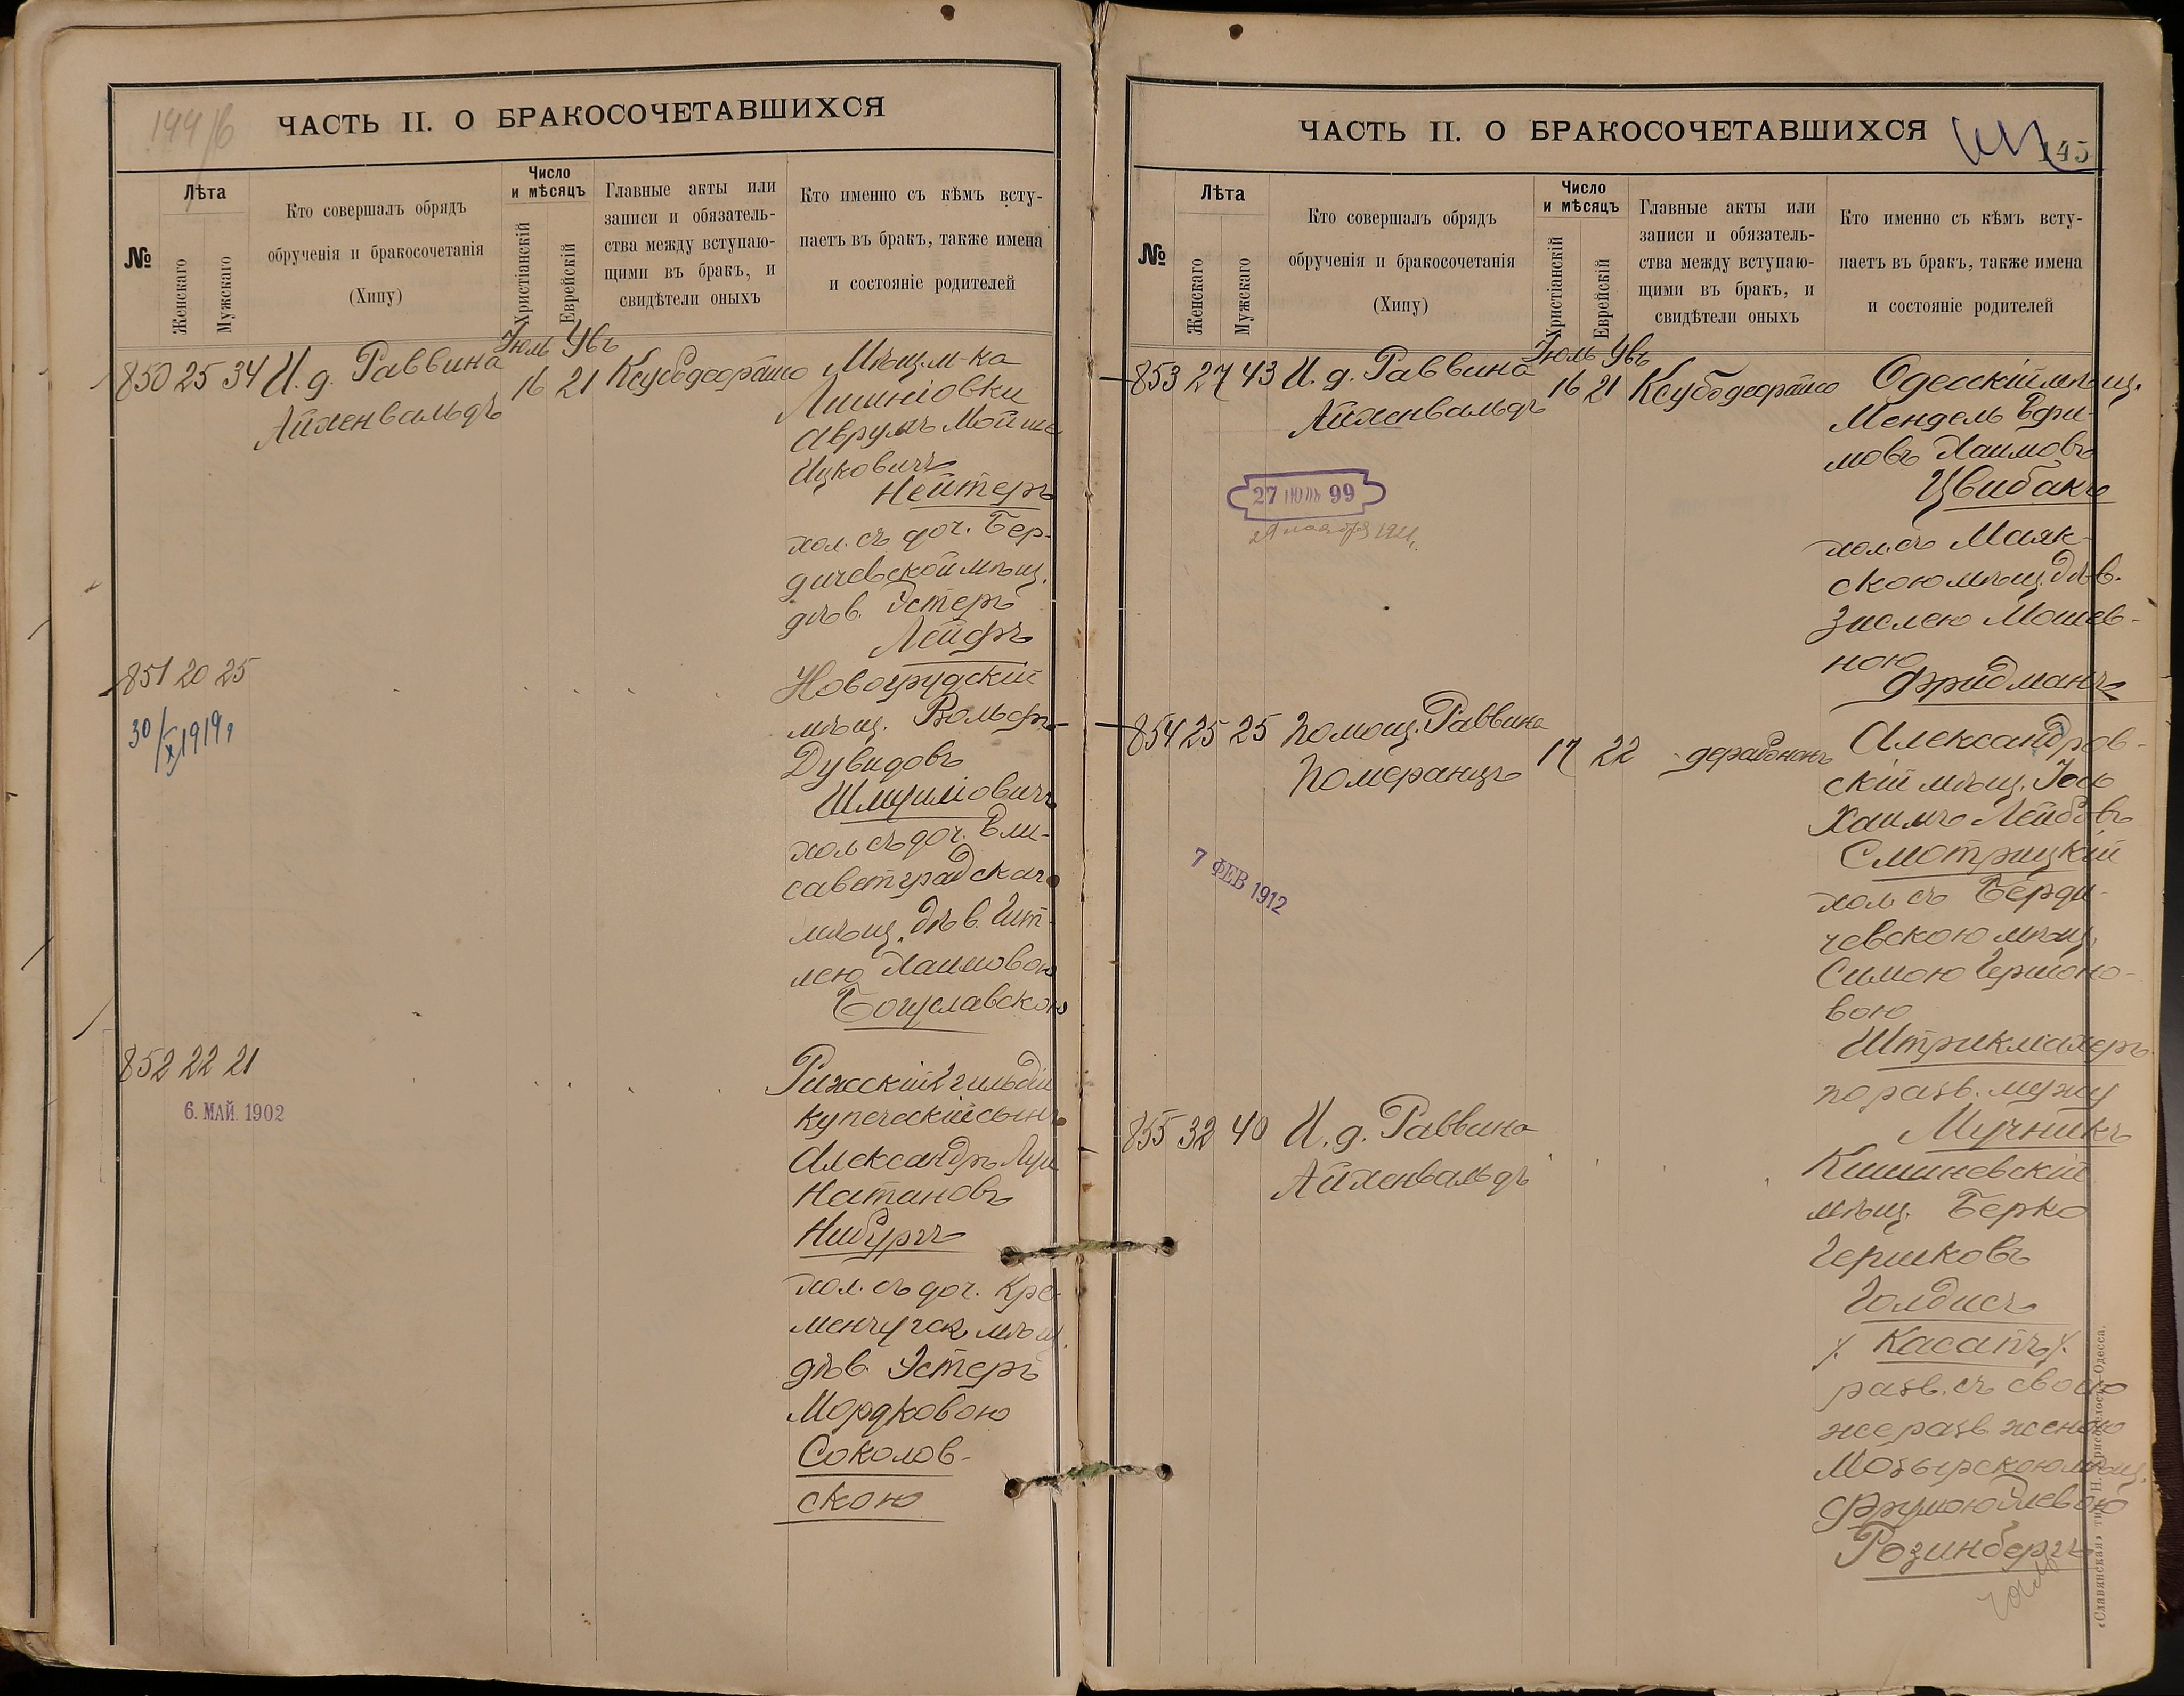 144/б
ЧАСТЬ II. О БРАКОСОЧЕТАВШИХСЯ
№
Лѣта
Женскаго
Мужскаго
Кто совершалъ обрядъ
обрученія и бракосочетанія
(Хипу)
Число
и мѣсяцъ
Христіанскій
Еврейскій
Главные акты или
записи и обязатель-
ства между вступаю-
щими въ бракъ, и
свидѣтели оныхъ
Кто именно съ кѣмъ всту-
паетъ въ бракъ, также имена
и состояніе родителей
850 25 34 И. д. Раввина
Айхенвальдъ
Іюль
16 21
Мѣщ. м-ка
Аврумъ Мойше
Ицковичъ
Нейтеръ
хол. съ доч. Бер-
дичевской мѣщ.
дѣв. Эстеръ
Лейфъ
851 20 25
30/X 1919 г
Новогрудскій
мѣщ. Вольфъ
Дувидовъ
Шмуиловичъ
хол съ доч. Ели-
саветградскаго
мѣщ. дѣв. Гит-
лею Хаимовою
Богуславскою
852 22 21
6. МАЙ. 1902
Рижскій 2 гильдіи
купеческій сынъ
Александръ
Натановъ
Нибургъ
хол. съ доч. Кре-
менчугск. мѣщ.
дѣв. Эстеръ
Мордковою
Соколов-
скою
ЧАСТЬ II. О БРАКОСОЧЕТАВШИХСЯ
145
№
Лѣта
Женскаго
Мужскаго
Кто совершалъ обрядъ
обрученія и бракосочетанія
(Хипу)
Число
и мѣсяцъ
Христіанскій
Еврейскій
Главные акты или
записи и обязатель-
ства между вступаю-
щими въ бракъ, и
свидѣтели оныхъ
Кто именно съ кѣмъ всту-
паетъ въ бракъ, также имена
и состояніе родителей
853 27 43 И. д. Раввина
Айхенвальдъ
Іюль
16 21
27 ІЮЛЬ 99
Одесскій мѣщ.
Мендель Ефри-
мовъ Хаимовъ
Цвибакъ
хол. съ Маяк-
скою мѣщ. дѣв.
Зислею Мошев-
ною
Фридманъ
854 25 25 Помощ. Раввина
Померанцъ
17 22
7 ФЕВ 1912
Александров-
скій мѣщ. Іось
Хаимъ Лейбовъ
Смотрицкій
хол съ Берди-
чевскою мѣщ.
Симою Гершоно-
вою
Штрикмахеръ
по разв. мужу
Мучникъ
855 32 40 И. д. Раввина
Айхенвальдъ
Кишиневскій
мѣщ. Берко
Гершковъ
Голдисъ
Касапъ
разв. съ своею
же разв. женою
Мозырскою мѣщ.
Фрумою
Розинбергъ